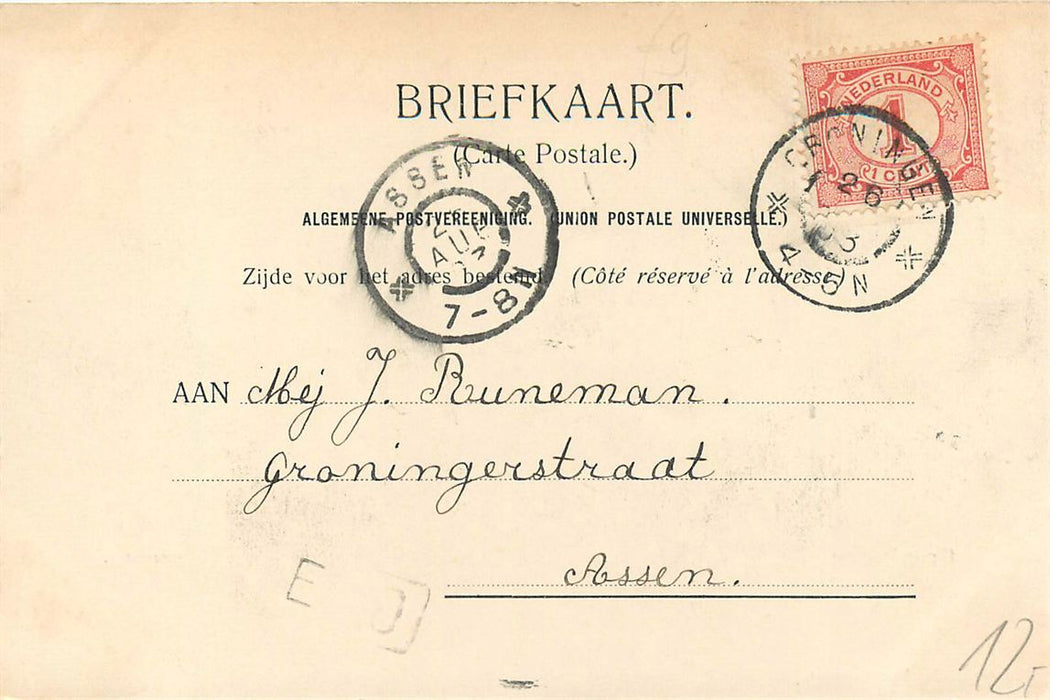 BRIEFKAART.
(Carte Postale.)
ALGEMEENE POSTVEREENIGING. (UNION POSTALE UNIVERSELLE.)
Zijde voor het adres bestemd. (Côté réservé à l'adresse)
NEDERLAND
1
1 CENT
GRONINGEN
26
4-5N
ASSEN
AUG
7-8N
AAN Mej J. Runeman.
Groningerstraat
Assen.
E
12,-